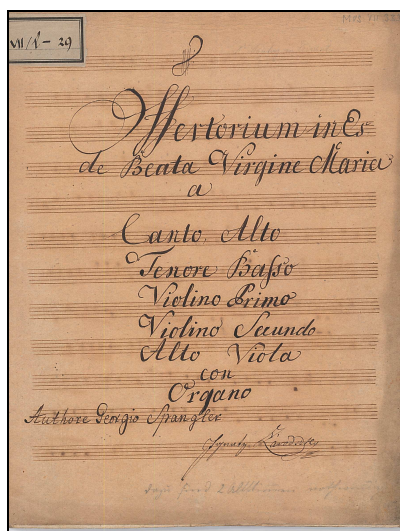 VII/1 - 29
Offertorium in Es
de Beata Virgine Maria
a
Canto. Alto
Tenore Basso
Violino Primo
Violino Secundo
Alto Viola
con
Organo
Authore Georgio Spangler